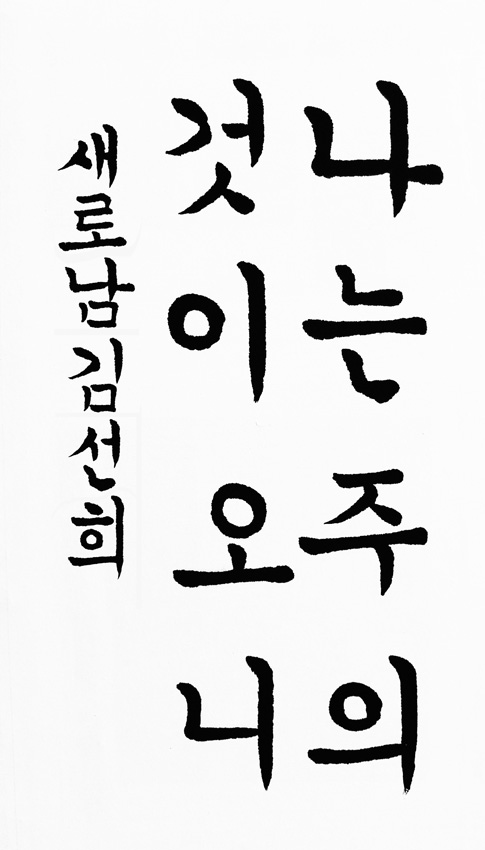 나는주의
것이오니
새로남김선희